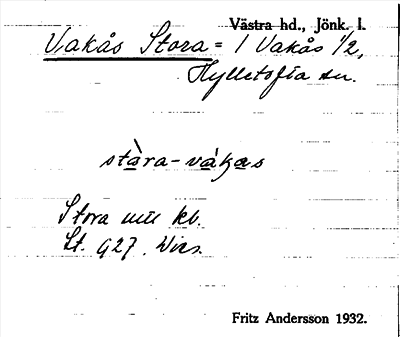 Västra hd., Jönk. l.
Vakås Stora = 1 Vakås 1/2,
Hylletofta sn.
stàra-vákas
Stora kb.
Lt. 927.
Fritz Andersson 1932.